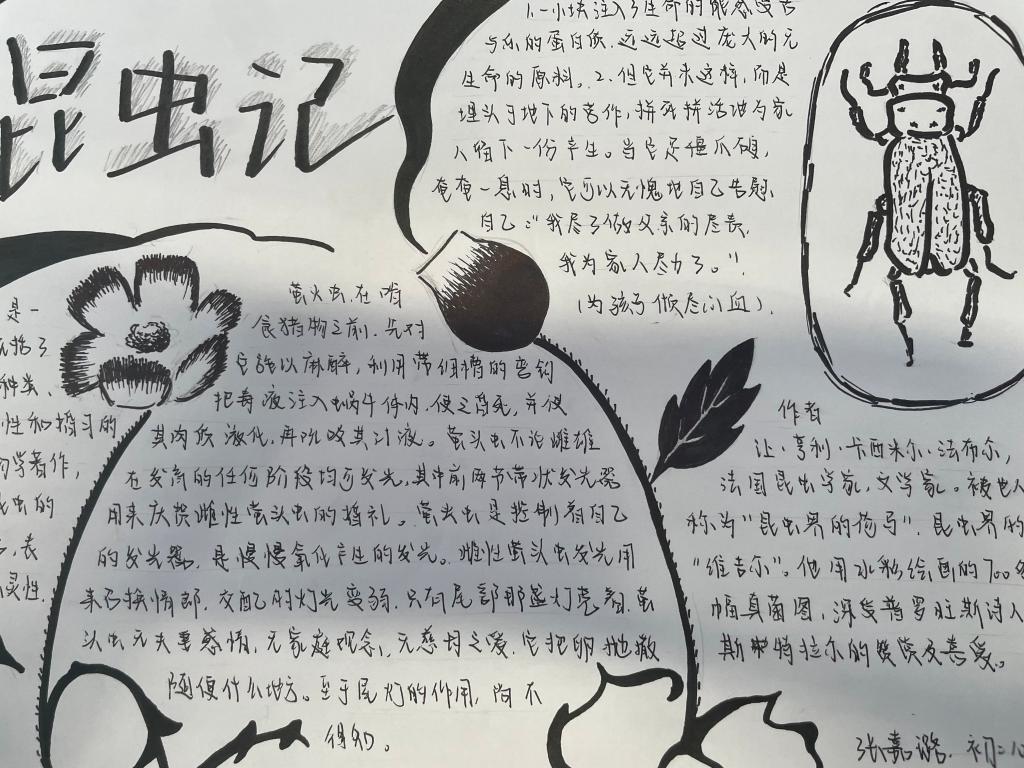 昆虫记
1.一小块注入了生命的能感受苦
与乐的蛋白质,远远超过庞大的无
生命的原料。2.但它并未这样,而是
埋头于地下的苦作,拼死拼活地为家
人留下一份产生。当它足僵爪硬,
奄奄一息时,它可以无愧地自己告慰
自己:“我尽了做父亲的尽责,
我为家人尽力了。”
(为孩子倾尽心血)
是一
概括了
种类、
性和婚习的
学著作,
虫的
表
灵性
萤火虫在啃
食猎物之前,先对
它施以麻醉,利用带细槽的弯钩
把毒液注入蜗牛体内,使之昏死,并使
其肉质液化,再吮吸其汁液。萤头虫不论雌雄
在发育的任何阶段均可发光,其中前两节带状发光器
用来庆贺雌性萤头虫的婚礼。萤火虫是控制着自己
的发光器,是慢慢氧化产生的发光。雌性萤头虫发光用
来召换情郎,交配时灯光变弱,只有尾部那盏灯亮着,萤
头虫无夫妻感情,无家庭观念,无慈母之爱,它把卵地撒
随便什么地方。至于尾灯的作用,尚不
得知。
作者
让·亨利·卡西米尔·法布尔,
法国昆虫学家,文学家。被世人
称为“昆虫界的荷马”,昆虫界的
“维吉尔”。他用水彩绘画的700多
幅真菌图,深受普罗旺斯诗人
斯特拉尔的赞赏及喜爱。
张嘉 初二